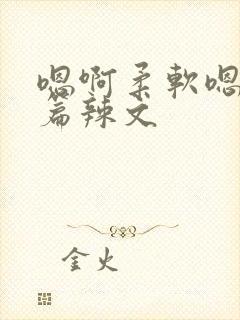 嗯啊柔软嗯
篇辣文
金火